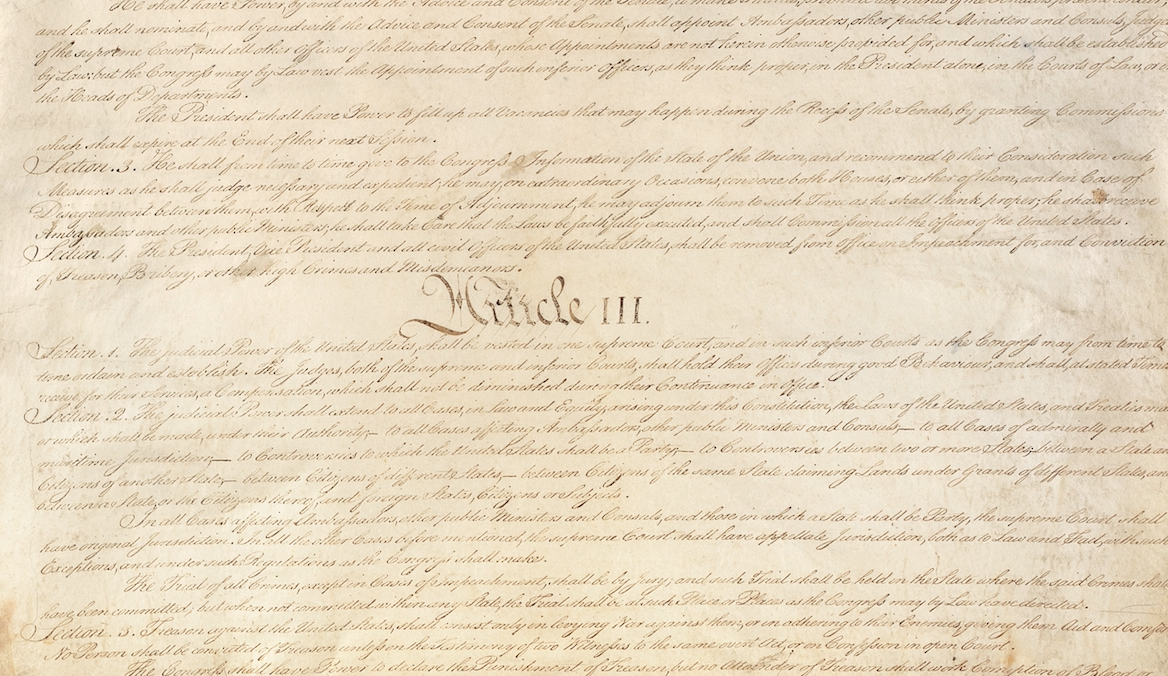 He shall have Power, by and with the Advice and Consent of the Senate, to make
and he shall nominate, and by and with the Advice and Consent of the Senate, shall appoint Ambassadors, other public Ministers and Consuls, Judges
of the supreme Court, and all other Officers of the United States, whose Appointments are not herein otherwise provided for, and which shall be established
by Law: but the Congress may by Law vest the Appointment of such inferior Officers, as they think proper, in the President alone, in the Courts of Law, or in
the Heads of Departments.
The President shall have Power to fill up all Vacancies that may happen during the Recess of the Senate, by granting Commissions
which shall expire at the End of their next Session.
Section. 3. He shall from time to time give to the Congress Information of the State of the Union, and recommend to their Consideration such
Measures as he shall judge necessary and expedient; he may, on extraordinary Occasions, convene both Houses, or either of them, and in Case of
Disagreement between them, with Respect to the Time of Adjournment, he may adjourn them to such Time as he shall think proper; he shall receive
Ambassadors and other public Ministers; he shall take Care that the Laws be faithfully executed, and shall Commission all the Officers of the United States.
Section. 4. The President, Vice President and all civil Officers of the United States, shall be removed from Office on Impeachment for, and Conviction
of, Treason, Bribery, or other high Crimes and Misdemeanors.
Article III.
Section. 1. The judicial Power of the United States, shall be vested in one supreme Court, and in such inferior Courts as the Congress may from time to
time ordain and establish. The Judges, both of the supreme and inferior Courts, shall hold their Offices during good Behaviour, and shall, at stated Times
receive for their Services, a Compensation, which shall not be diminished during their Continuance in Office.
Section. 2. The judicial Power shall extend to all Cases, in Law and Equity, arising under this Constitution, the Laws of the United States, and Treaties
or which shall be made, under their Authority;— to all Cases affecting Ambassadors, other public Ministers and Consuls;— to all Cases of admiralty and
maritime Jurisdiction;— to Controversies to which the United States shall be a Party;— to Controversies between two or more States;— between a State and
Citizens of another State,— between Citizens of different States,— between Citizens of the same State claiming Lands under Grants of different States, and
between a State, or the Citizens thereof, and foreign States, Citizens or Subjects.
In all Cases affecting Ambassadors, other public Ministers and Consuls, and those in which a State shall be Party, the supreme Court shall
have original Jurisdiction. In all the other Cases before mentioned, the supreme Court shall have appellate Jurisdiction, both as to Law and Fact, with such
Exceptions, and under such Regulations as the Congress shall make.
The Trial of all Crimes, except in Cases of Impeachment, shall be by Jury; and such Trial shall be held in the State where the said Crimes shall
have been committed; but when not committed within any State, the Trial shall be at such Place or Places as the Congress may by Law have directed.
Section. 3. Treason against the United States, shall consist only in levying War against them, or in adhering to their Enemies, giving them Aid and Comfort
No Person shall be convicted of Treason unless on the Testimony of two Witnesses to the same overt Act, or on Confession in open Court.
The Congress shall have Power to declare the Punishment of Treason, but no Attainder of Treason shall work Corruption of Blood, or